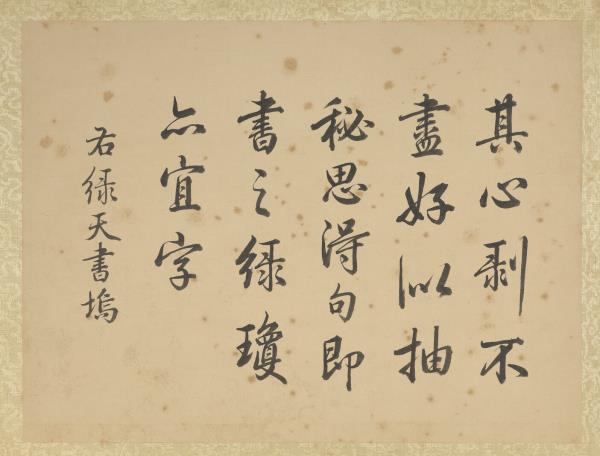 其心剥不
盡好似抽
秘思得句即
書之緑瓊
亦宜字
右緑天書塢